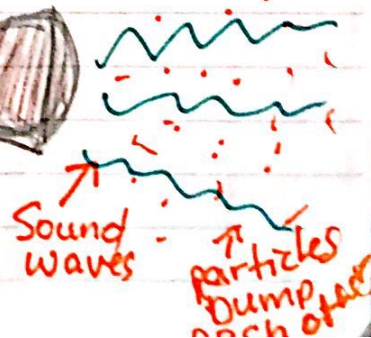 Sound
waves
particles
bump
each other